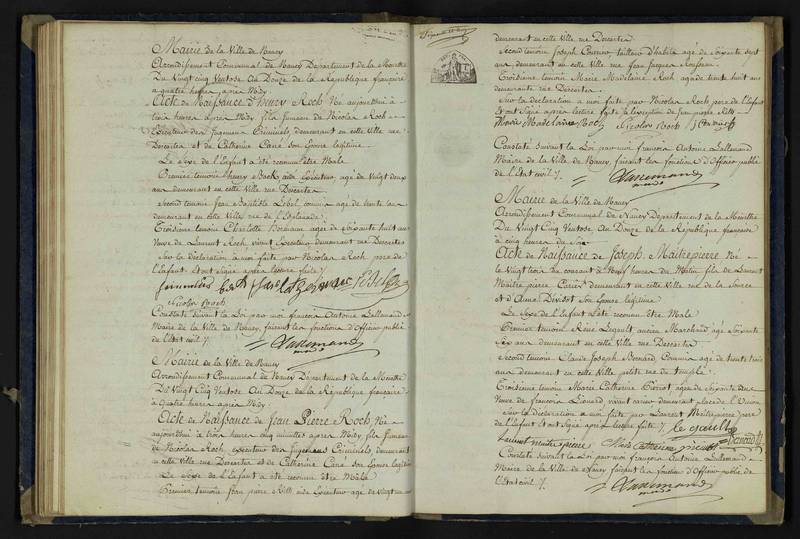 Mairie de la Ville de Nancy
Arrondissement Communal de Nancy Departement de la Meurthe
Du Vingt cinq Ventose au Douze de la République française
a quatre heures après Midy
Acte de Naissance d'henry Roch Né aujourdhui à
trois heures après Midy fils Jumeau de Nicolas Roch
Executeur des Jugemens Criminels, demeurant en cette Ville rue
Descartes et de Catherine Cané son Epouse légitime
Le sexe de l'Enfant a été reconnu être Male
Premier temoin henry aide Executeur agé de Vingt deux
ans demeurant en cette Ville rue Descartes
Second temoin Jean Baptiste Lebel commis agé de trente ans
demeurant en cette Ville rue de l'Esplanade
Troisieme temoin Charlotte agée de Soixante huit ans
Veuve de Laurent Roch, vivant Executeur demeurante rue Descartes
Sur la déclaration à moi faite par Nicolas Roch pere de
l'Enfant et ont signé après lecture faite /.
Nicolas Roch
Constaté suivant la Loi par moi françois Antoine Lallemand
Maire de la Ville de Nancy, faisant les fonctions d'Officier public
de l'Etat civil /.
Lallemand
Mairie de la Ville de Nancy
Arrondissement Communal de Nancy Département de la Meurthe
Du Vingt Cinq Ventose Au Douze de la République française
à quatre heures après Midy
Acte de Naissance de Jean Pierre Roch Né
aujourdhui à trois heures cinq minutes après Midy fils Jumeau
de Nicolas Roch executeur des Jugemens Criminels, demeurant
en cette Ville rue Descartes et de Catherine Cané son Epouse légitime
Le sexe de l'Enfant a été reconnu être Mâle
Premier temoin Jean pierre aide Executeur agé de vingt
demeurant en cette Ville rue Descartes
Second temoin Joseph tailleur d'habits agé de Soixante sept
ans, demeurant en cette Ville rue Jean Jacques Rousseau
Troisieme temoin Marie Madelaine Roch agée de trente huit ans
demeurante rue Descartes
Sur la déclaration a moi faite par Nicolas Roch pere de l'Enfant
et ont Signé après lecture faite à l'exception de Jean pierre
Marie Madelaine Roch Nicolas Roch
Constaté suivant la Loi par moi françois Antoine Lallemand
Maire de la Ville de Nancy, faisant les fonctions d'Officier public
de l'Etat civil /.
Lallemand
Mairie de la Ville de Nancy
Arrondissement Communal de Nancy Departement de la Meurthe
Du Vingt Cinq Ventose Au Douze de la République française
à cinq heures du Soir
Acte de Naissance de Joseph Maitrepierre Né
le Vingt trois du courant à heures du Matin fils de Laurent
Maitre pierre demeurant en cette Ville rue de la Source
et d'Anne son Epouse légitime
Le sexe de l'Enfant a été reconnu être Male
Premier temoin René Legault ancien Marchand agé Soixante
Six ans demeurant en cette Ville rue Descartes
Second temoin Claude Joseph Bernard Commis agé de trente trois
ans demeurant en cette Ville petite rue du temple
Troisieme temoin Marie Catherine agée de Soixante deux
Veuve de françois vivant demeurant place de l'Union
Sur la déclaration a moi faite par Laurent Maitrepierre pere
de l'Enfant et ont Signé après lecture faite /. le gault
laurent maitre pierre Marie Catherine Bernard
Constaté suivant la Loi par moi françois Antoine Lallemand
Maire de la Ville de Nancy faisant les fonctions d'Officier public de
l'Etat civil /.
Lallemand